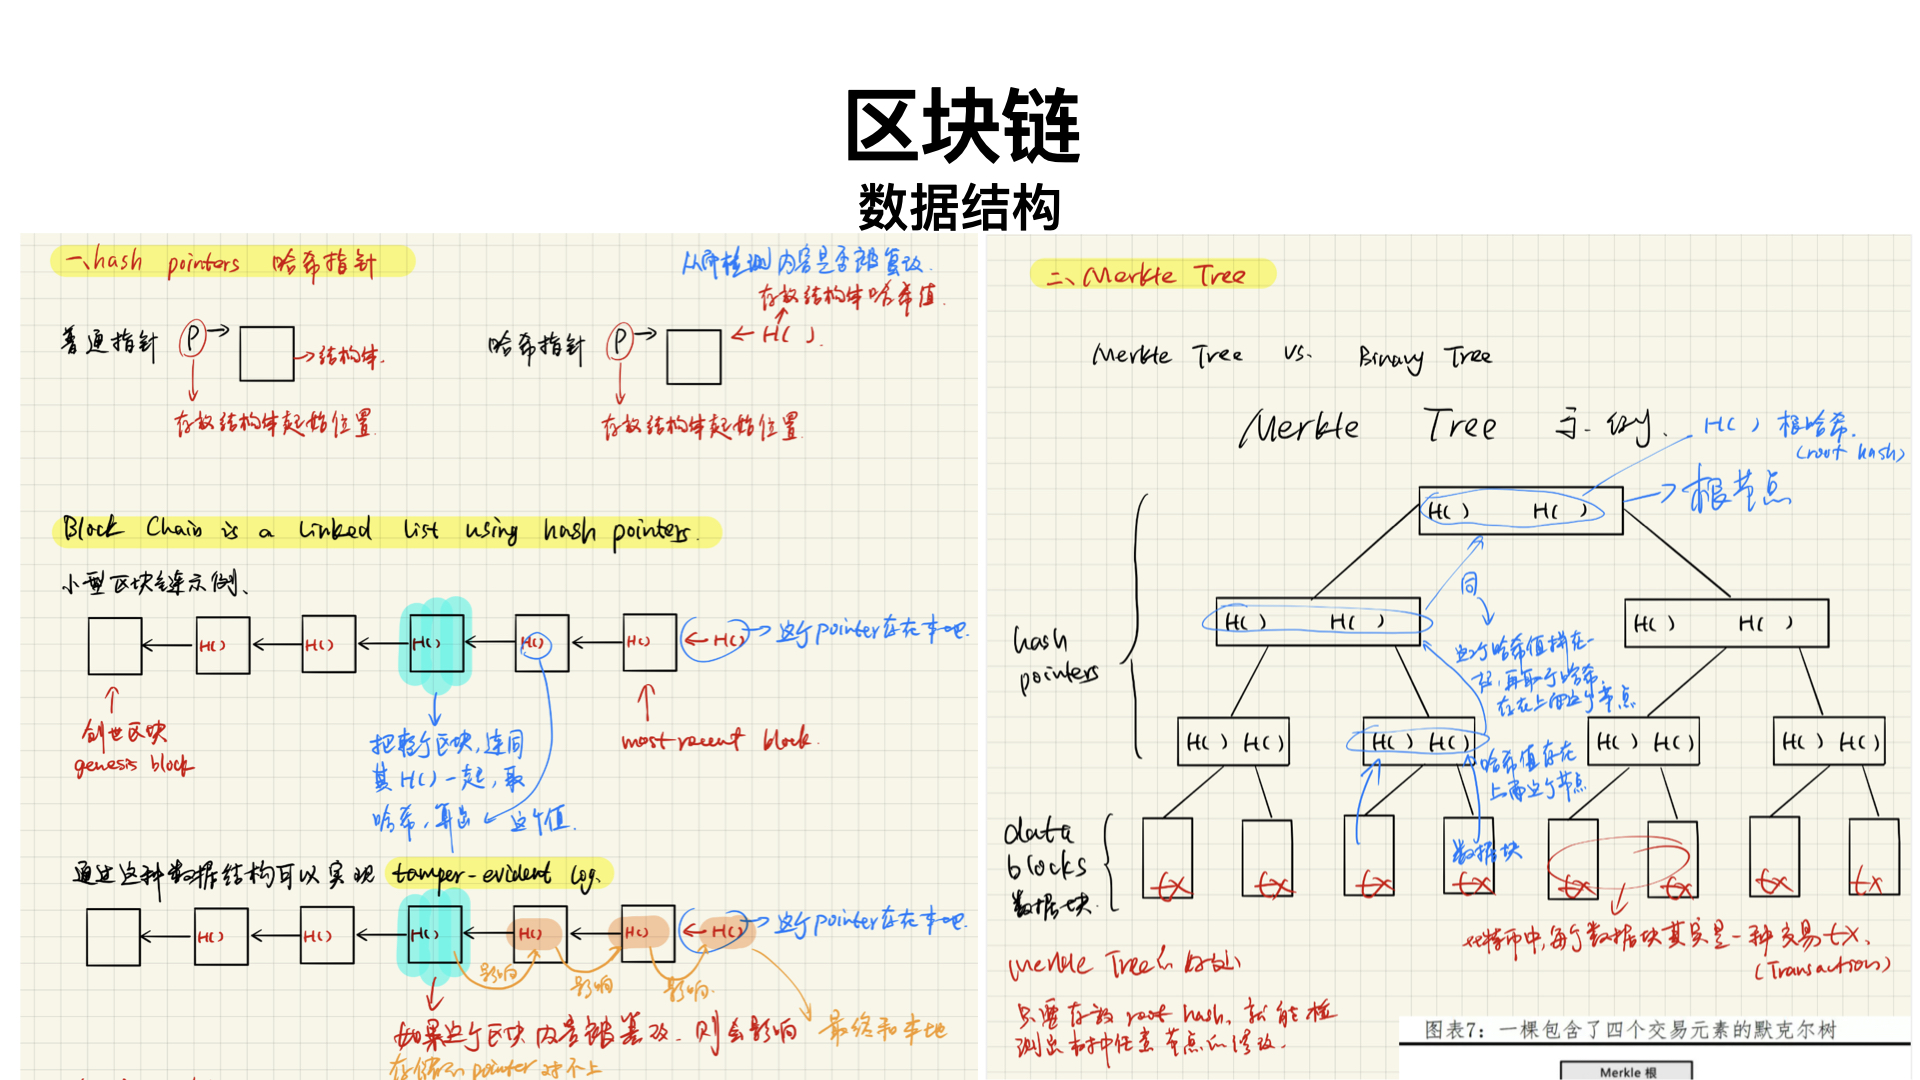 区块链
数据结构
一、hash pointers 哈希指针
从而检测内容是否被篡改.
存放结构体哈希值.
普通指针 P
结构体.
哈希指针 P
H( ).
存放结构体起始位置
存放结构体起始位置
Block Chain is a Linked List using hash pointers.
小型区块链示例、
H( ) H( ) H( ) H( ) H( ) H( )
这个pointer存在本地.
创世区块
genesis block
most recent block.
把整个区块,连同
其H()一起,取
哈希,算出 这个值.
通过这种数据结构可以实现 tamper-evident log.
H( ) H( ) H( ) H( ) H( ) H( )
这个pointer存在本地.
影响 影响 影响.
如果这个区块内容被篡改.则会影响 最终和本地
存储的pointer对不上
二、Merkle Tree
Merkle Tree vs. Binary Tree
Merkle Tree 示例.
H( ) 根哈希.
(root hash)
根节点
H( ) H( )
同
H( ) H( )
H( ) H( )
hash
pointers
这个哈希值拼在一
起,再取个哈希,
存在上面这个节点
H( ) H( )
H( ) H( )
H( ) H( )
H( ) H( )
哈希值存在
上面这个节点
data
blocks
数据块.
数据块
tx tx tx tx tx tx tx tx
比特币中,每个数据块其实是一种交易tx、
(Transaction)
Merkle Tree的好处
只要存放root hash, 就能检
测出树中任意节点的修改.
图表7：一棵包含了四个交易元素的默克尔树
Merkle 根